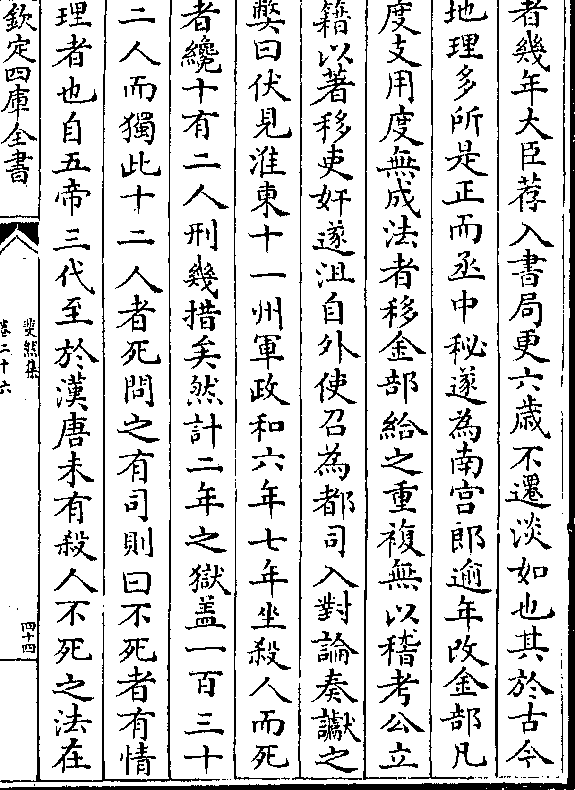 者幾年大臣荐入書局更六歳不遷淡如也其於古今
地理多所是正而丞中秘遂為南宫郎逾年改金部凡
度支用度無成法者移金部給之重複無以稽考公立
籍以著移吏奸遂沮自外使召為都司入對論奏讞之
獘曰伏見淮東十一州軍政和六年七年坐殺人而死
者纔十有二人刑幾措矣然計二年之獄盖一百三十
二人而獨此十二人者死問之有司則曰不死者有情
理者也自五帝三代至於漢唐未有殺人不死之法在
欽定四庫全書
斐然集
卷二十六
四十四